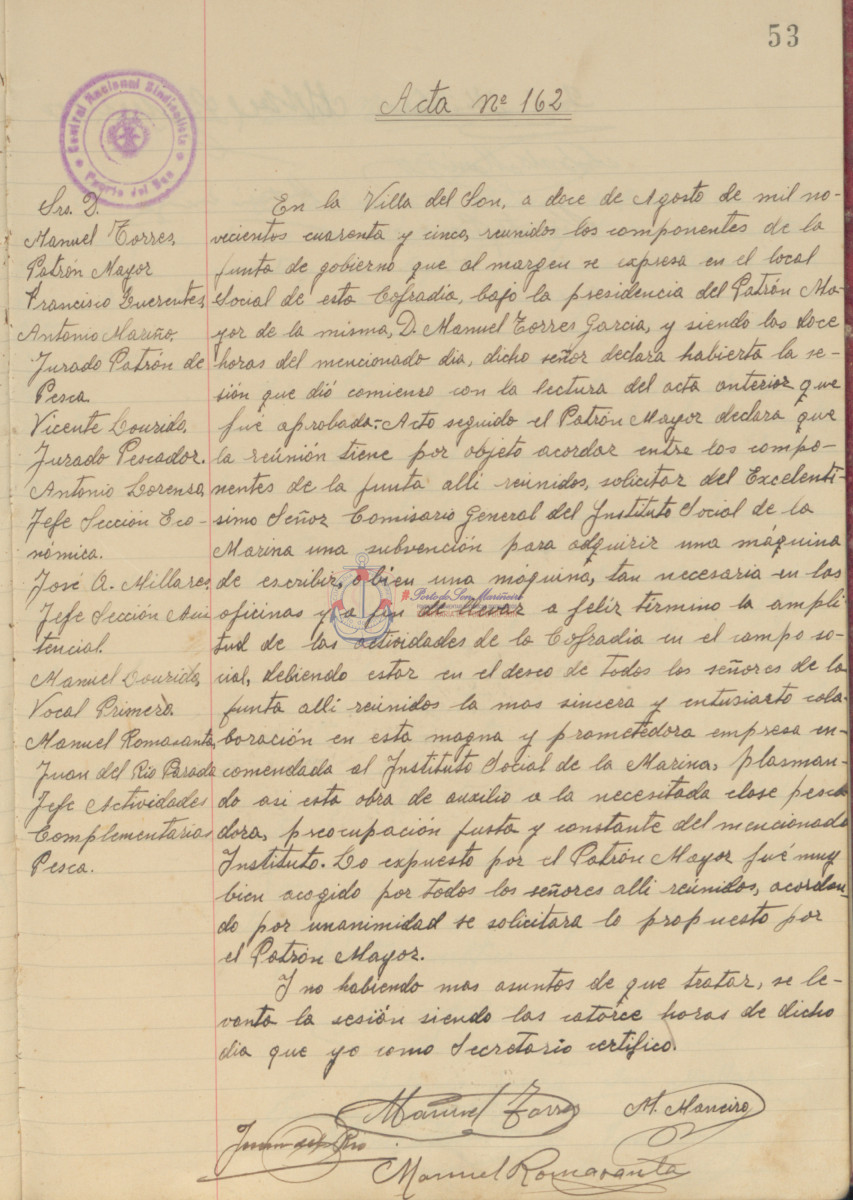 53
Acta nº 162
Central Nacional Sindicalista
Puerto del Son
Srs. D.
Manuel Torres,
Patrón Mayor
Francisco Fuerentes,
Antonio Mariño,
Jurado Patrón de
Pesca
Vicente Lourido,
Jurado Pescador.
Antonio Lorenzo,
Jefe Sección Eco-
nómica.
José A. Millares,
Jefe Sección Asis
tencial.
Manuel Lourido,
Vocal Primero.
Manuel Romasanta,
Juan del Río Parada
Jefe Actividades
Complementarias
Pesca.
En la Villa del Son, a doce de Agosto de mil no-
vecientos cuarenta y cinco, reunidos los componentes de la
junta de gobierno que al margen se expresa en el local
Social de esta Cofradia, bajo la presidencia del Patrón Ma-
yor de la misma, D. Manuel Torres Garcia, y siendo las doce
horas del mencionado dia, dicho señor declara habierta la se-
sión que dió comienzo con la lectura del acta anterior que
fué aprobada.- Acto seguido el Patrón Mayor declara que
la reúnión tiene por objeto acordar entre los compo-
nentes de la junta alli reúnidos, solicitar del Excelenti-
simo Señor Comisario General del Instituto Social de la
Marina una subvención para adquirir una máquina
de escribir, o bien una máquina, tan necesaria en las
oficinas y a fin de llevar a feliz término la ampli
tud de las actividades de la Cofradia en el campo so-
cial, debiendo estar en el deseo de todos los señores de la
junta alli reúnidos la mas sincera y entusiasta cola-
boración en esta magna y prometedora empresa en-
comendada al Instituto Social de la Marina, plasman-
do asi esta obra de auxilio a la necesitada clase pesca
dora, preocupación justa y constante del mencionado
Instituto. Lo expuesto por el Patrón Mayor fué muy
bien acogido por todos los señores alli reúnidos, acordan-
do por unanimidad se solicitara lo propuesto por
el Patrón Mayor.
I no habiendo mas asuntos de que tratar, se le-
vanta la sesión siendo las catorce horas de dicho
dia que yo como Secretario certifico.
Porto do Son Mariñeiro
Manuel Torres
M. Maneiro
Juan del Rio
Manuel Romasanta